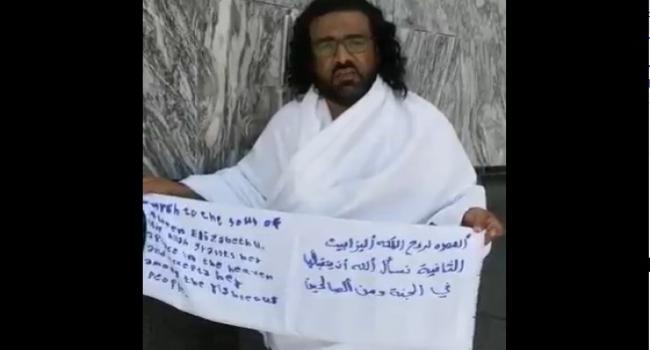 umrah to the soul of
Queen Elizabeth ll.
Allah Grants her
in the heaven
and accepts her
among the righteous
People.
العمره لروح الملكه اليزابيث
الثانية نسأل الله ان يتقبلها
في الجنة ومن الصالحين